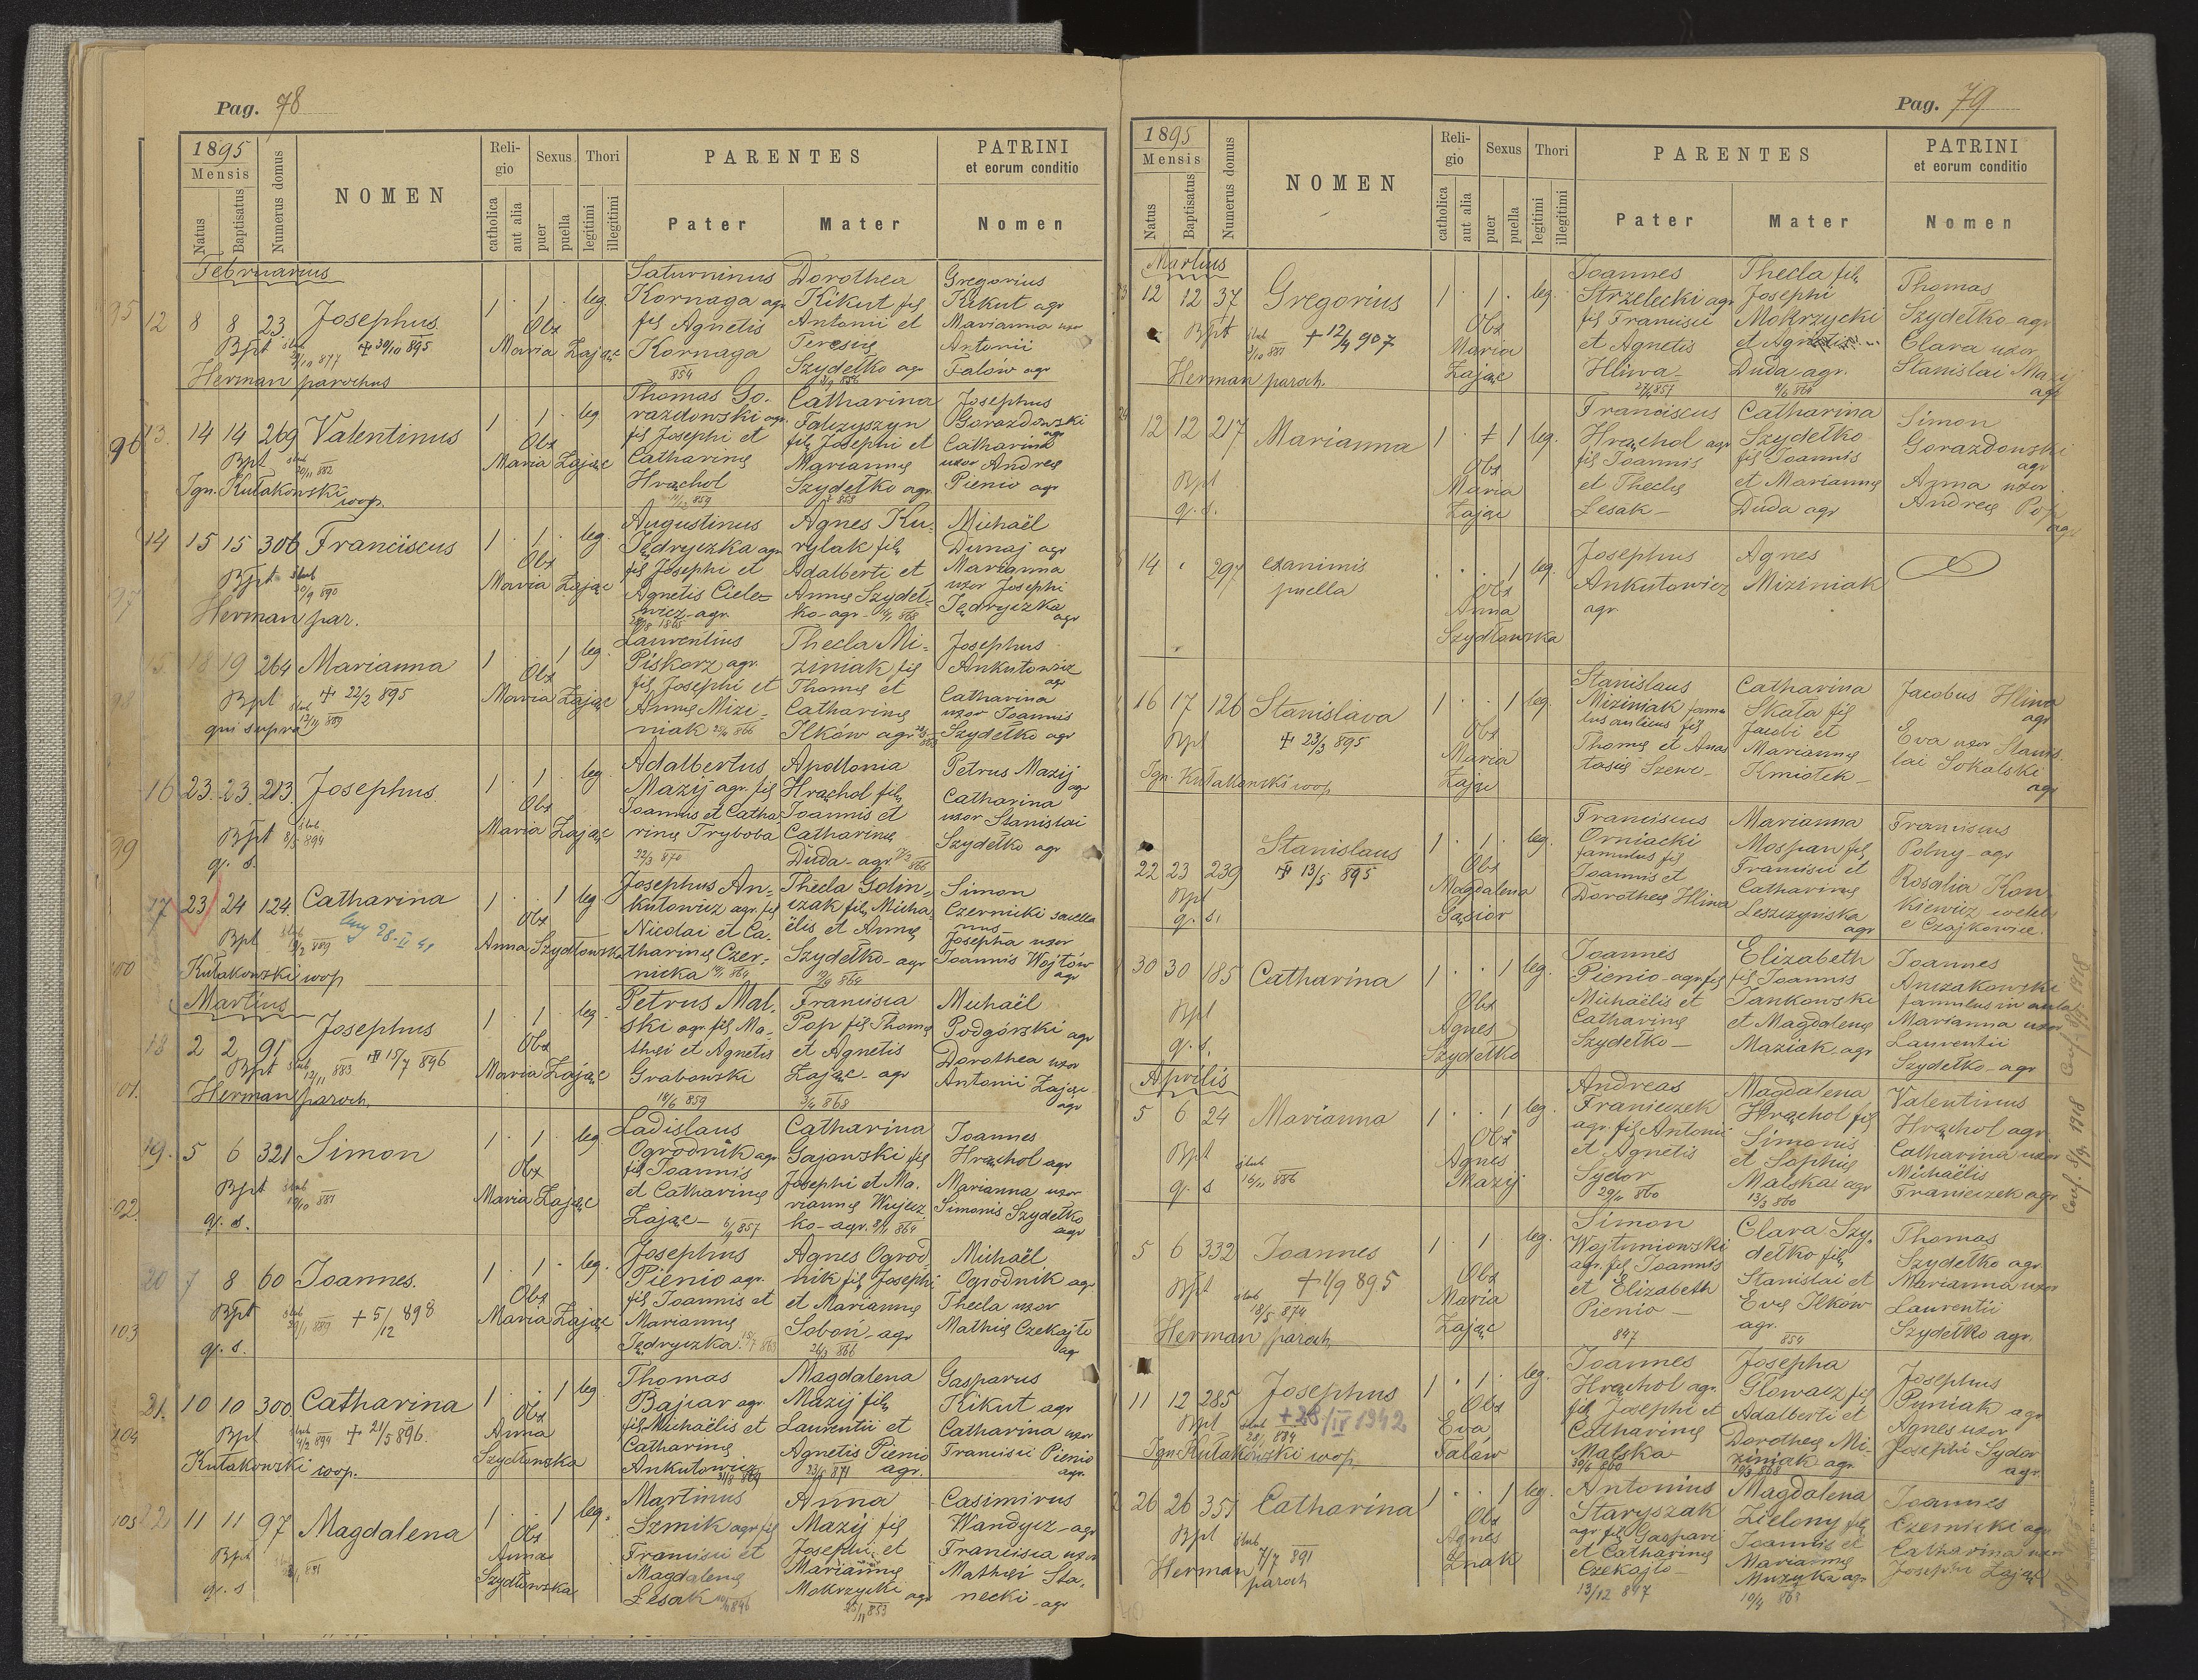 Pag. 78
1895
Mensis
Natus
Baptisatus
Numerus domus
NOMEN
Reli-
gio
catholica
aut alia
Sexus
puer
puella
Thori
legitimi
illegitimi
PARENTES
Pater
Mater
PATRINI
et eorum conditio
Nomen
Februarius
12 8 8 23 Josephus
Bpt + 30/10 895
Herman parochus
1 1 leg.
Obs
Maria Zając
Saturninus
Kornaga agr
fil Agnetis
Kornaga
854
Dorothea
Kikut fil
Antonii et
Teresię
Szydełko agr
Gregorius
Kikut agr
Marianna uxor
Antonii
Falów agr
96 13. 14 14 269 Valentinus
Bpt slub 20/11 882
Ign. Kułakowski coop.
1 1 leg
Obs
Maria Zając
Thomas Go-
razdowski agr.
fil Josephi et
Catharinę
Hrąchol
Catharina
Falczyszyn
fil. Josephi et
Mariannę
Szydełko agr.
Josephus
Gorazdowski
agr
Catharina
uxor Andreę
Pienio agr
14 15 15 306 Franciscus
Bpt slub
Herman par.
1 1 leg.
Obs
Maria Zając
Augustinus
Jędryczka agr
fil Josephi et
Agnetis Ciele-
wicz agr.
Agnes Ku-
rylak fil.
Adalberti et
Annę Szydeł-
ko agr
Michaël
Dunaj agr
Marianna
uxor Josephi
Jędryczka
agr
98 15 18 19 264 Marianna
Bpt + 22/2 895
qui supra
1 1 leg.
Obs
Maria Zając
Laurentius
Piskorz agr.
fil. Josephi et
Annę Mizi-
niak
Thecla Mi-
ziniak fil
Thomę et
Catharinę
Ilków agr
Josephus
Ankutowicz
agr
Catharina
uxor Joannis
Szydełko agr
99 16 23. 23. 213. Josephus
Bpt slub 8/5 894
q. s.
1 1 leg
Obs
Maria Zając
Adalbertus
Mazij agr. fil
Joannis et Catha-
rinę Tryboba
22/3 870
Apollonia
Hrąchol fil.
Joannis et
Catharinę
Duda agr.
Petrus Mazij
agr
Catharina
uxor Stanislai
Szydełko agr
17 23 24 124. Catharina
28-II 41
Bpt
Kułakowski coop
1 1 leg
Obs
Anna Szydłowska
Josephus An-
kutowicz agr. fil
Nicolai et Ca-
tharinę Czer-
nicka
Thecla Golin-
czak fil. Micha-
ëlis et Annę
Szydełko agr
Simon
Czernicki
Josepha uxor
Joannis Wojtów
agr
Martius
18 2 2 91 Josephus
Bpt slub 12/11 883 15/7 896
Herman paroch.
1 1 leg.
Obs
Maria Zając
Petrus Mal-
ski agr. fil Ma-
thei et Agnetis
Grabowski
18/6 859
Francisca
Pop fil Thomę
et Agnetis
Zając agr
3/4 868
Michaël
Podgórski agr
Dorothea uxor
Antonii Zając
agr
19. 5 6 321 Simon
Bpt slub
q. s.
1 1 leg
Obs
Maria Zając
Ladislaus
Ogrodnik agr.
fil Joannis
et Catharinę
Zając 857
Catharina
Gajowski fil
Josephi et Ma-
riannę Wujcz
ko agr.
Joannes
Hrąchol agr
Marianna uxor
Simonis Szydełko
agr
20 7 8 60 Joannes.
Bpt slub + 5/12 898
q. s.
1 1 leg.
Obs
Maria Zając
Josephus
Pienio agr.
fil. Joannis et
Mariannę
Jędryczka
Agnes Ogrod
nik fil Josephi
et Mariannę
Soboń agr
Michaël
Ogrodnik agr
Thecla uxor
Mathię Czekajło
agr
103
21. 10 10 300 Catharina
Bpt slub + 21/5 896.
Kułakowski coop.
1 1 leg
Obs
Anna
Szydłowska
Thomas
Bajcar agr
fil Michaëlis et
Catharinę
Ankutowicz
Magdalena
Mazij fil.
Laurentii et
Agnetis Pienio
agr.
Gasparus
Kikut agr
Catharina uxor
Francisci Pienio
agr.
22 11 11 97 Magdalena
Bpt
q. s
1 1 leg.
Obs
Anna
Szydłowska
Martinus
Szmik agr fil
Francisci et
Magdalenę
Lesak
Anna
Mazij fil
Josephi et
Mariannę
Mokrzycki agr
Casimirus
Wandycz agr
Francisca uxor
Mathei Sta-
necki agr
Pag. 79
1895
Mensis
Natus
Baptisatus
Numerus domus
NOMEN
Reli-
gio
catholica
aut alia
Sexus
puer
puella
Thori
legitimi
illegitimi
PARENTES
Pater
Mater
PATRINI
et eorum conditio
Nomen
Martius
12 12 37 Gregorius
Bpt slub + 12/4 907
Herman paroch.
1 1 leg.
Obs
Maria
Zając
Joannes
Strzelecki agr
fil Francisci
et Agnetis
Hliwa
Thecla fil.
Josephi
Mokrzycki
Duda agr.
Thomas
Szydełko agr
Clara uxor
Stanislai Mazij
agr
12 12 217 Marianna
Bpt
q. s.
1 1 leg.
Obs
Maria
Zając
Franciscus
Hrąchol agr
fil Joannis
et Theclę
Lesak
Catharina
Szydełko
fil Joannis
et Mariannę
Duda agr
Simon
Gorazdowski
agr
Anna uxor
Andreę Pop
agr
14 297 exanimis
puella
1 leg.
Obs
Anna
Szydłowska
Josephus
Ankutowicz
agr.
Agnes
Miziniak
16 17 126 Stanislava
Bpt + 23/3 895
Ign. Kułakowski coop
1 1 leg.
Obs
Maria
Zając
Stanislaus
Miziniak famu
lus aulicus fil
Thomę et Anas
tasię Szewc
Catharina
Skała fil
Jacobi et
Mariannę
Kmiotek
Jacobus Hliwa
agr
Eva uxor Stanis
lai Sokalski
agr
22 23 239 Stanislaus
Bpt 13/5 895
q. s.
1 1 leg.
Obs
Magdalena
Gąsior
Franciscus
Orniacki
famulus fil
Joannis et
Dorotheę Hliwa
Marianna
Mospan fil
Francisci et
Catharinę
Leszczyńska
agr
Franciscus
Polny agr
Rosalia Kon
kiewicz
e Czajkowice.
30 30 185 Catharina
Bpt
q. s.
1 1 leg.
Obs
Agnes
Szydełko
Joannes
Pienio agr fil
Michaëlis et
Catharinę
Szydełko
Elizabeth
fil Joannis
Jankowski
et Magdalenę
Maziak agr
Joannes
Anczakowski
famulus in aula
Marianna uxor
Laurentii
Szydełko agr
Aprilis
5 6 24 Marianna
Bpt slub 16/11 886
q. s
1 1 leg.
Obs
Agnes
Mazij
Andreas
Franieczek
agr. fil Antonii
et Agnetis
Sydor
29/11 860
Magdalena
Hrąchol fil
Simonis
et Sophię
Malska agr
13/3 860
Valentinus
Hrąchol agr
Catharina uxor
Michaëlis
Franieczek agr
5 6 332 Joannes
Bpt slub 18/5 874 + 1/9 895
Herman paroch
1 1 leg.
Obs
Maria
Zając
Simon
Wojtuniowski
agr. fil Joannis
et Elizabeth
Pienio
847
Clara Szy-
dełko fil.
Stanislai et
Evę Ilków
agr.
854
Thomas
Szydełko agr
Marianna uxor
Laurentii
Szydełko agr.
11 12 285 Josephus
Bpt slub + 28/IV 1942
Ign. Kułakowski coop
1 1 leg.
Obs
Eva
Falów
Joannes
Hrąchol agr.
fil. Josephi et
Catharinę
Malska
30/6 860
Josepha
Głowacz fil
Adalberti et
Dorotheę Mi-
ziniak agr
Josephus
Puniak agr
Agnes uxor
Josephi Sydor
agr.
26 26 351 Catharina
Bpt slub 7/7 891
Herman paroch
1 1 leg.
Obs
Agnes
Znak
Antonius
Staryszak
agr fil Gaspari
et Catharinę
Czekajło
13/12 847
Magdalena
Zielony fil
Joannis et
Mariannę
Muzyka agr
10/4 863
Joannes
Czernicki agr
Catharina uxor
Josephi Zając